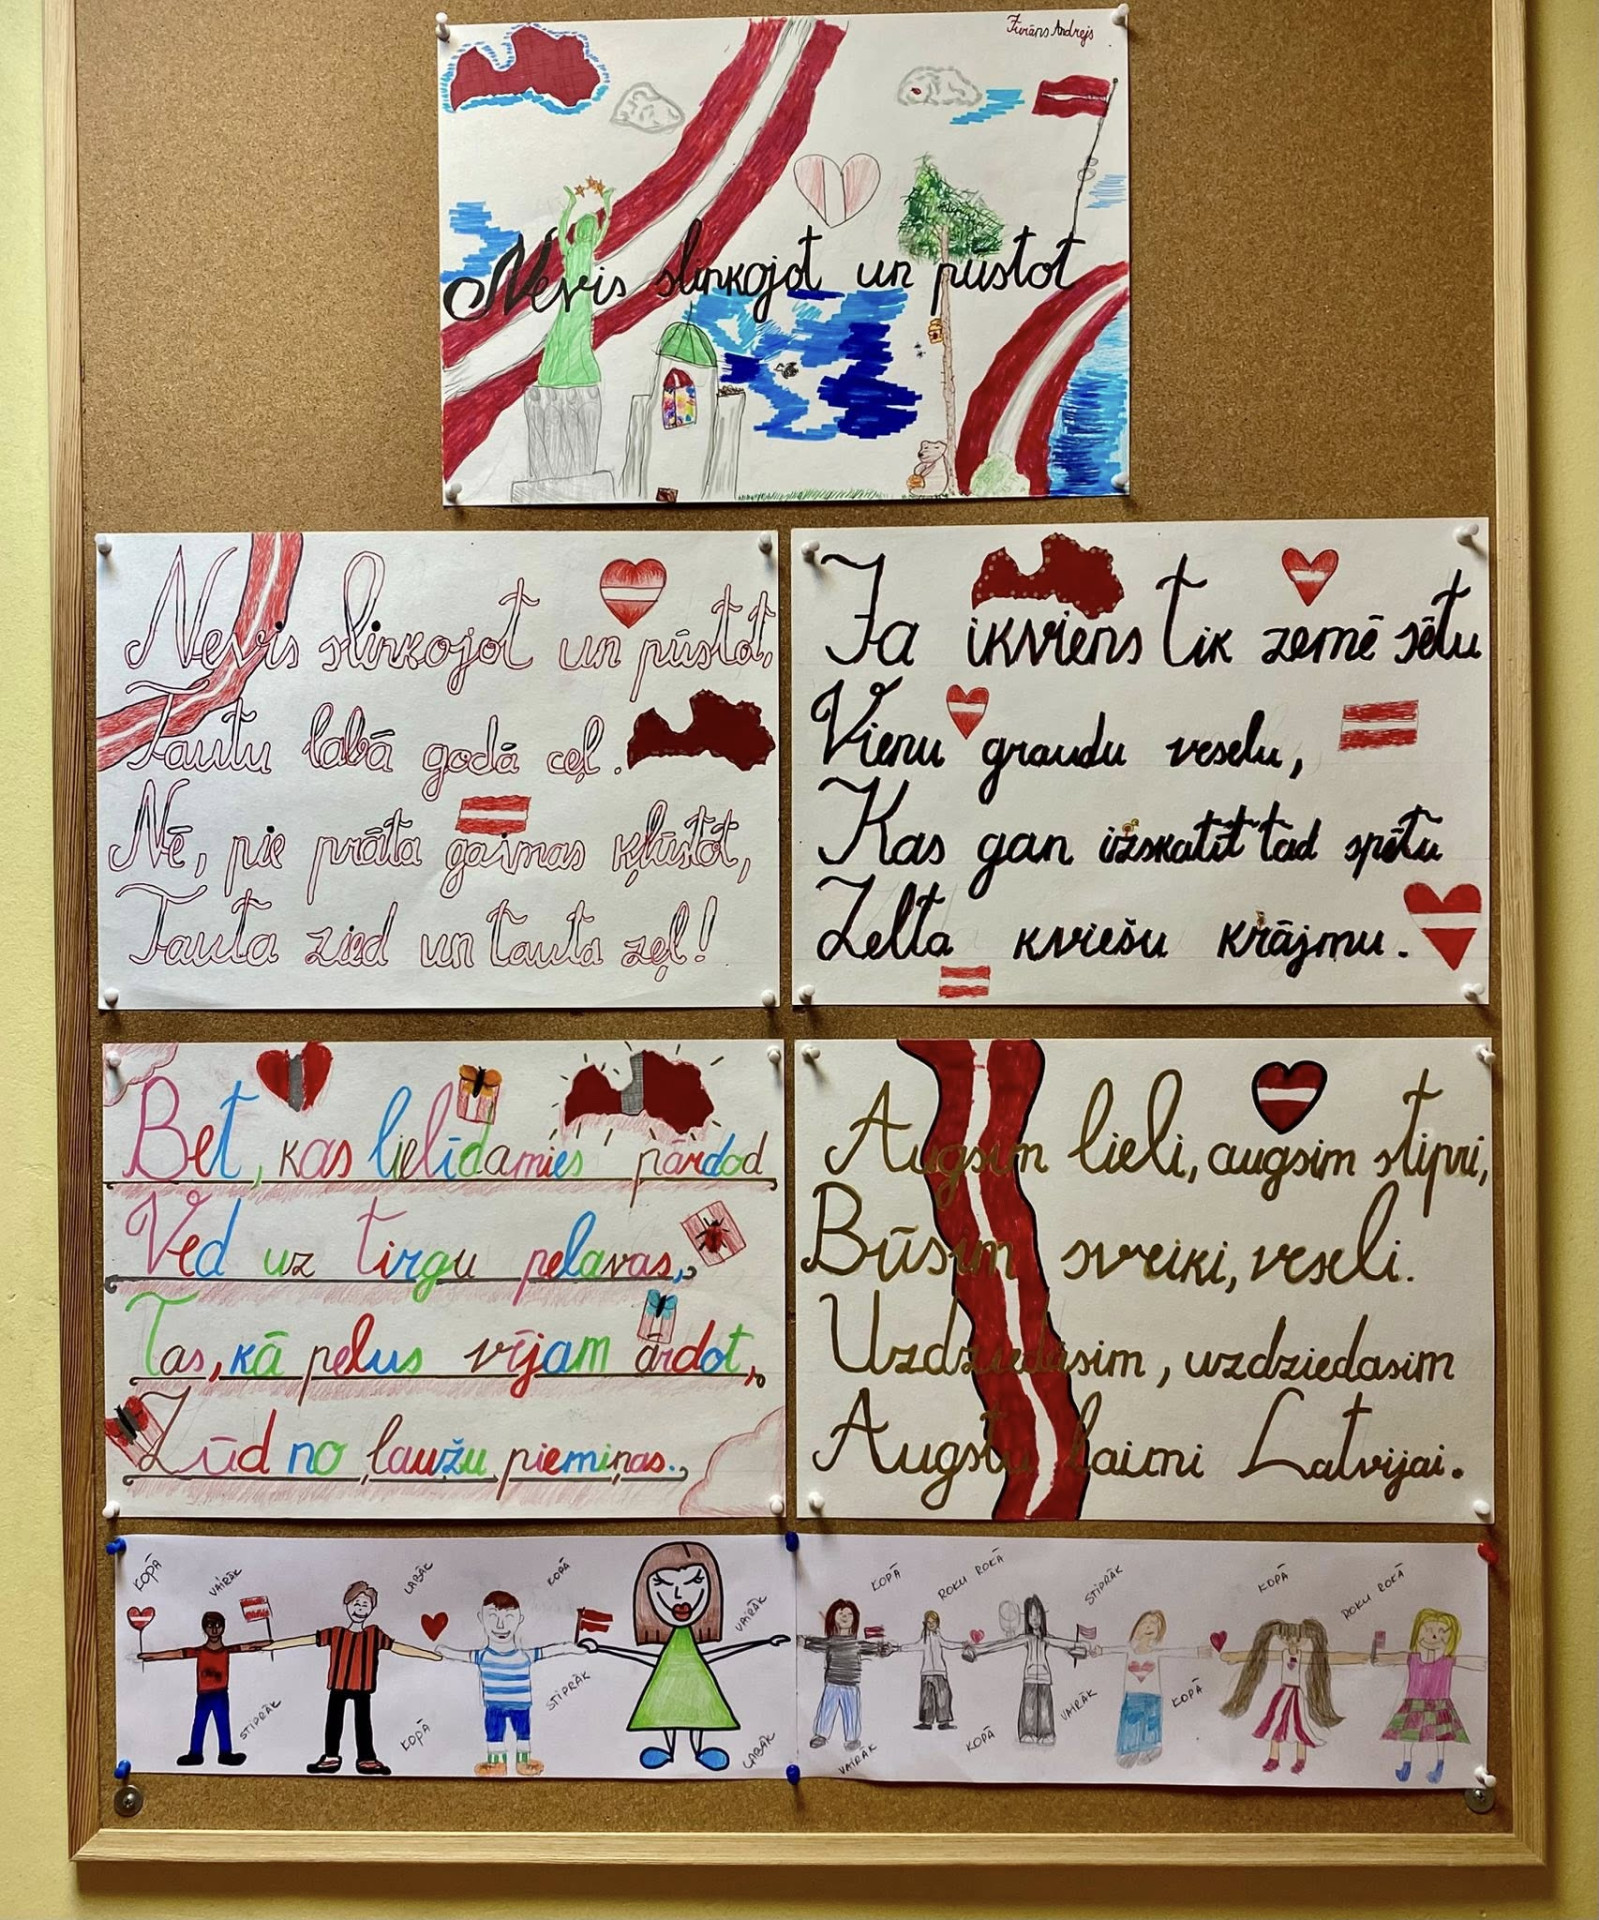 Furāns Andrejs
Nevis slinkojot un pūstot
Nevis slinkojot un pūstot,
Tautu labā godā ceļ.
Nē, pie prāta gaismas kļūstot,
Tauta zied un tauta zeļ!
Ja ikviens tik zemē sētu
Vienu graudu veselu,
Kas gan izskaitīt tad spētu
Zelta kviešu krājmu.
Bet, kas lielīdamies pārdod
Ved uz tirgu pelavas,
Tas, kā pelus vējam ārdot,
Zūd no ļaužu piemiņas.
Augsim lieli, augsim stipri,
Būsim sveiki, veseli.
Uzdziedāsim, uzdziedasim
Augstu laimi Latvijai.
KOPĀ
VAIRĀK
LABĀK
KOPĀ
VAIRĀK
STIPRĀK
KOPĀ
STIPRĀK
LABĀK
KOPĀ
ROKU ROKĀ
STIPRĀK
KOPĀ
ROKU ROKĀ
VAIRĀK
KOPĀ
VAIRĀK
KOPĀ